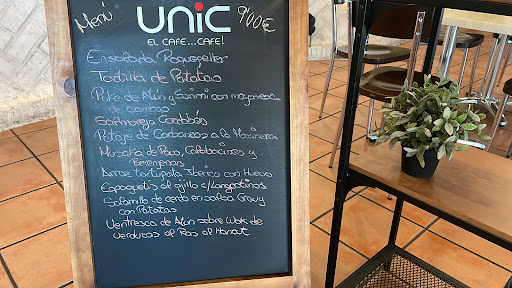 Menú
unic
9'00€
EL CAFE...CAFE!
Ensalada Roquefeller
Tortilla de Patatas
Pate de Atún y Surimi con mayonesa
de
Salmorejo Cordobés
Potaje de Garbanzos a la Marinera
Musaka de Pavo, Calabacines y
Berenjenas
Arroz tortupola Iberico con Huevo
Espaguetis al ajillo c/Langostinos
Solomillo de cerdo en salsa Gravy
con Patatas
Ventresca de Atún sobre Wok de
verduras al Ras al Hanout